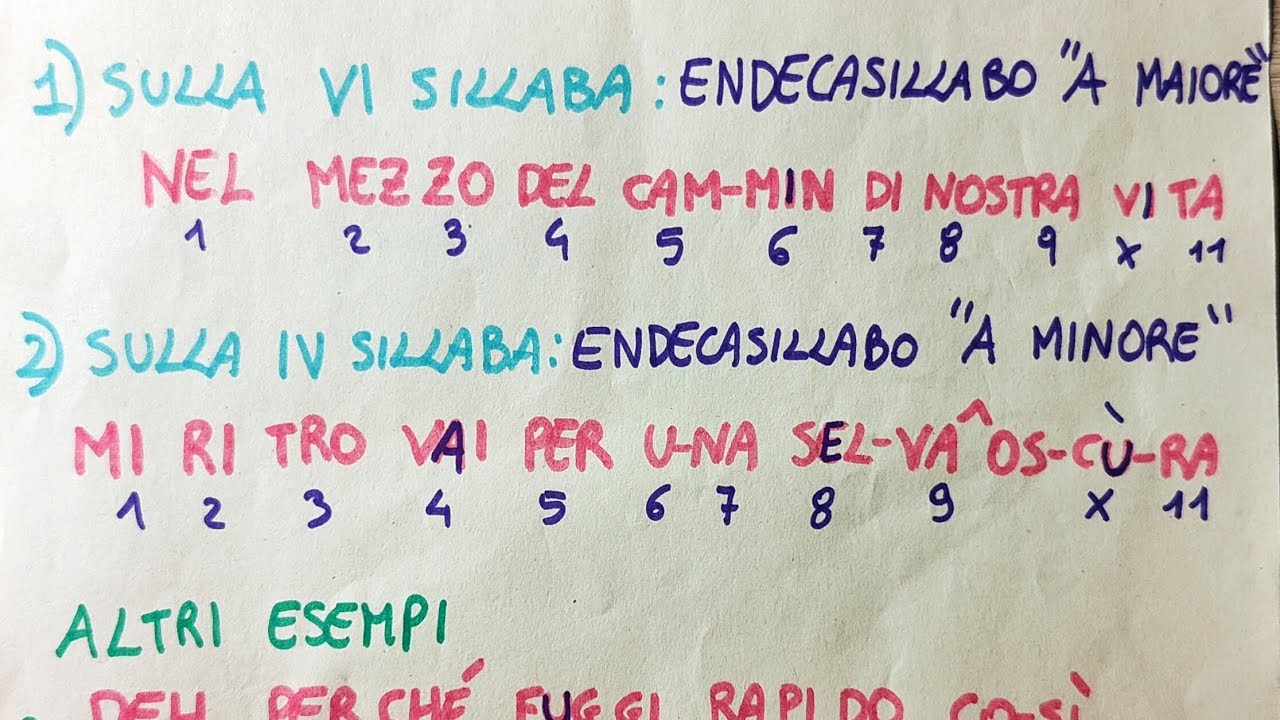 1) SULLA VI SILLABA: ENDECASILLABO "A MAIORE"
NEL MEZZO DEL CAM-MIN DI NOSTRA VITA
1 2 3 4 5 6 7 8 9 X 11
2) SULLA IV SILLABA: ENDECASILLABO "A MINORE"
MI RI TRO VAI PER U-NA SEL-VA^OS-CÙ-RA
1 2 3 4 5 6 7 8 9 X 11
ALTRI ESEMPI
DEH PERCHÉ FUGGI RAPIDO CO-SÌ